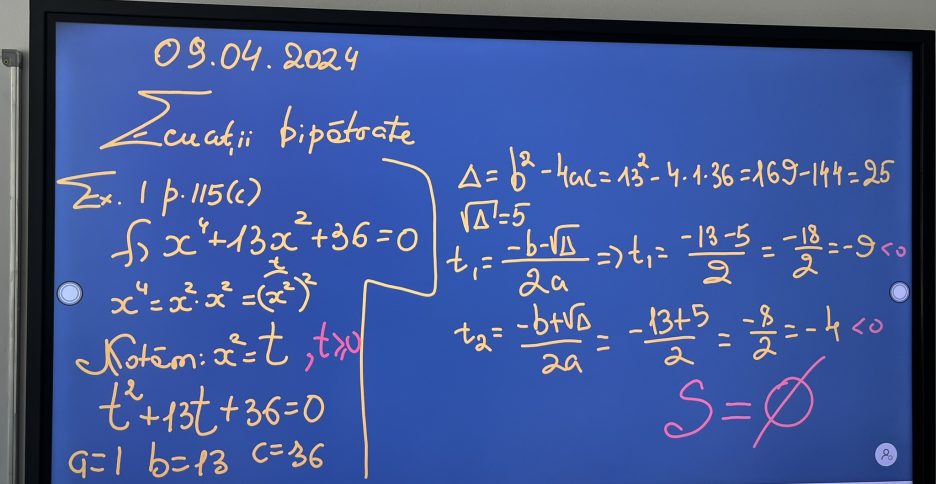 09.04.2024
Ecuații bipătrate
Ex. 1 p.115(c)
f) x⁴+13x²+36=0
t
x⁴=x²·x²=(x²)²
Notăm: x²=t, t≥0
t²+13t+36=0
a=1 b=13 c=36
Δ=b²-4ac=13²-4·1·36=169-144=25
√Δ=5
t₁=(-b-√Δ)/2a => t₁=(-13-5)/2=-18/2=-9<0
t₂=(-b+√Δ)/2a=(-13+5)/2=-8/2=-4<0
S=∅